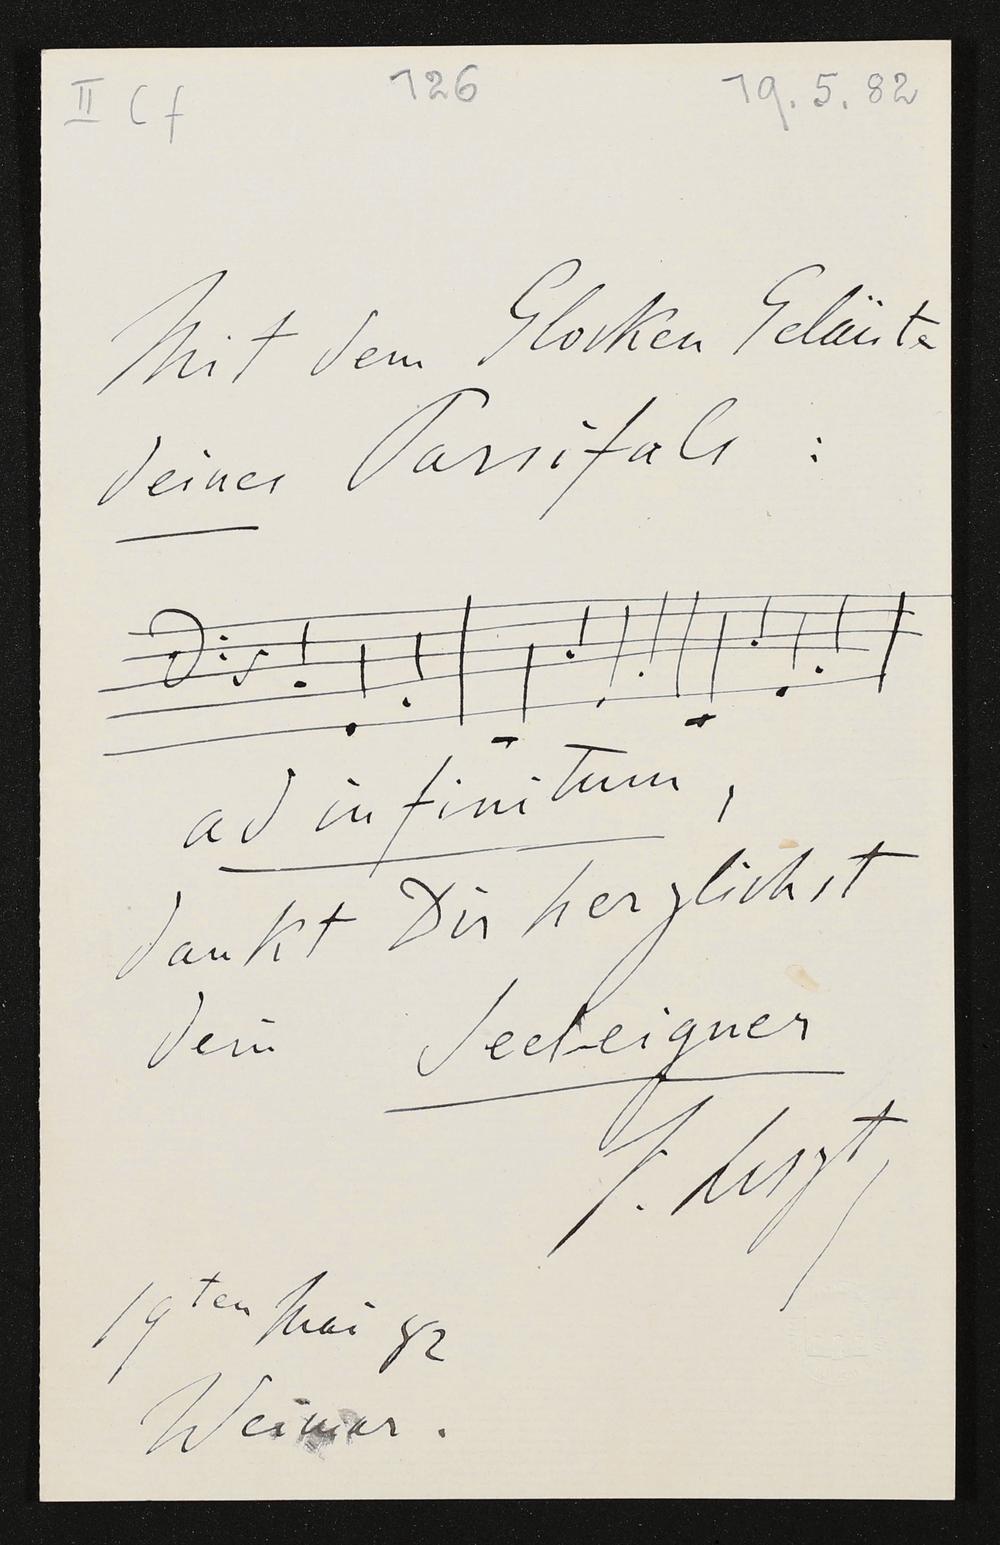 II C f 126 19. 5. 82
Mit dem Glocken Geläute
deines Parsifals :
ad infinitum,
dankt Dir herzlichst
dein Seeleigner
F. Liszt,
19ten Mai 82
Weimar.